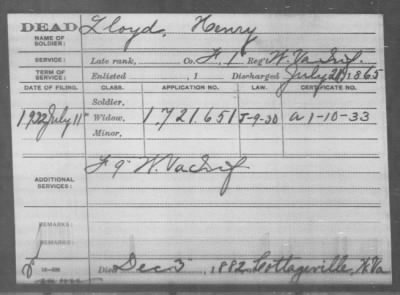 DEAD Lloyd, Henry
NAME OF SOLDIER:
SERVICE: Late rank, Co. F, 1 Reg't W. Va Inf.
TERM OF SERVICE: Enlisted , 1 Discharged July 21, 1865
DATE OF FILING. CLASS. APPLICATION NO. LAW. CERTIFICATE NO.
Soldier,
1922 July 11 Widow, 1.721.651 J-9-30 a 1-10-33
Minor,
ADDITIONAL SERVICES: F 9" W. Va Inf
REMARKS:
REMARKS:
Died Dec 3, 1882 Cottageville, W. Va